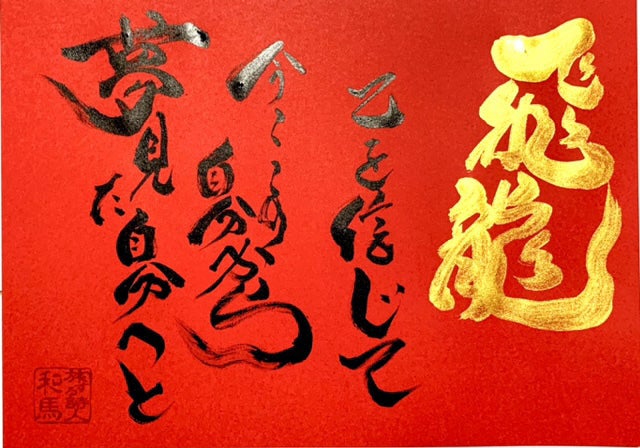 飛龍
己を信じて
今ここの自分から
夢見た自分へと